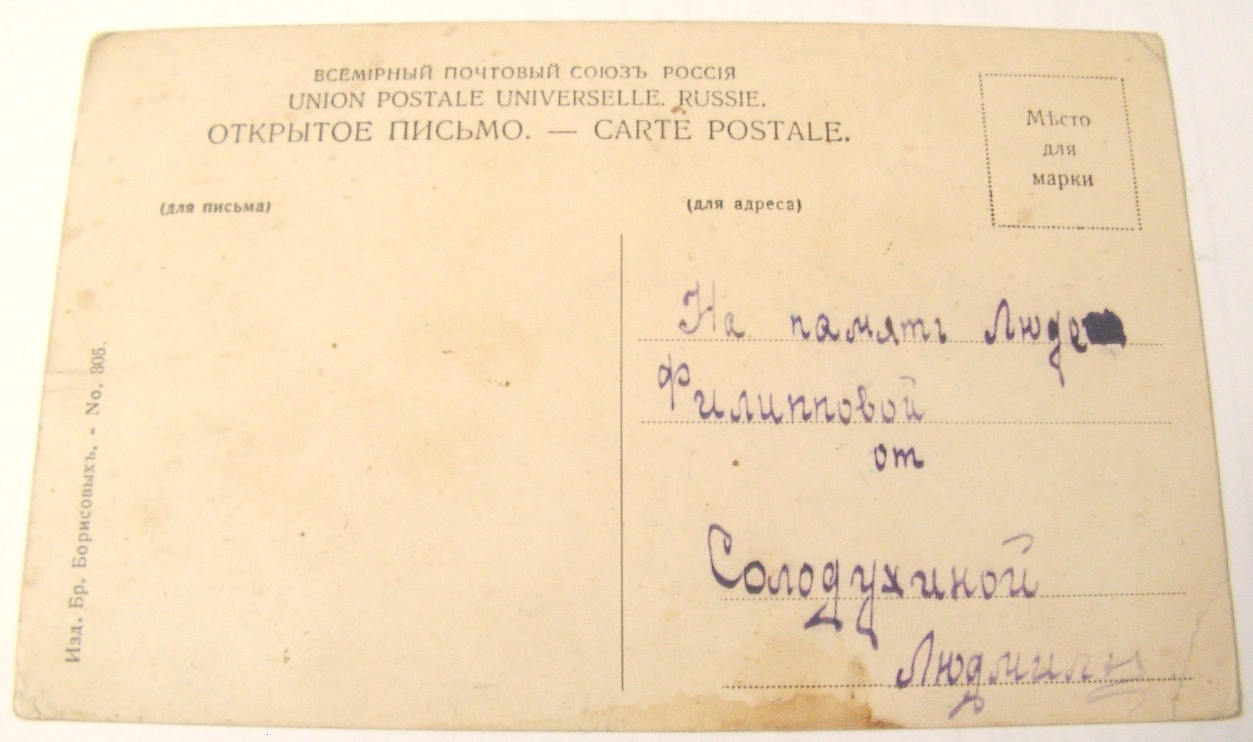 ВСЕМІРНЫЙ ПОЧТОВЫЙ СОЮЗЪ РОССІЯ
UNION POSTALE UNIVERSELLE. RUSSIE.
ОТКРЫТОЕ ПИСЬМО. — CARTE POSTALE.
Мѣсто
для
марки
(для письма)
(для адреса)
На память Люде
Филипповой
от
Солодухиной
Людмилы
Изд. Бр. Борисовыхъ. - No. 305.